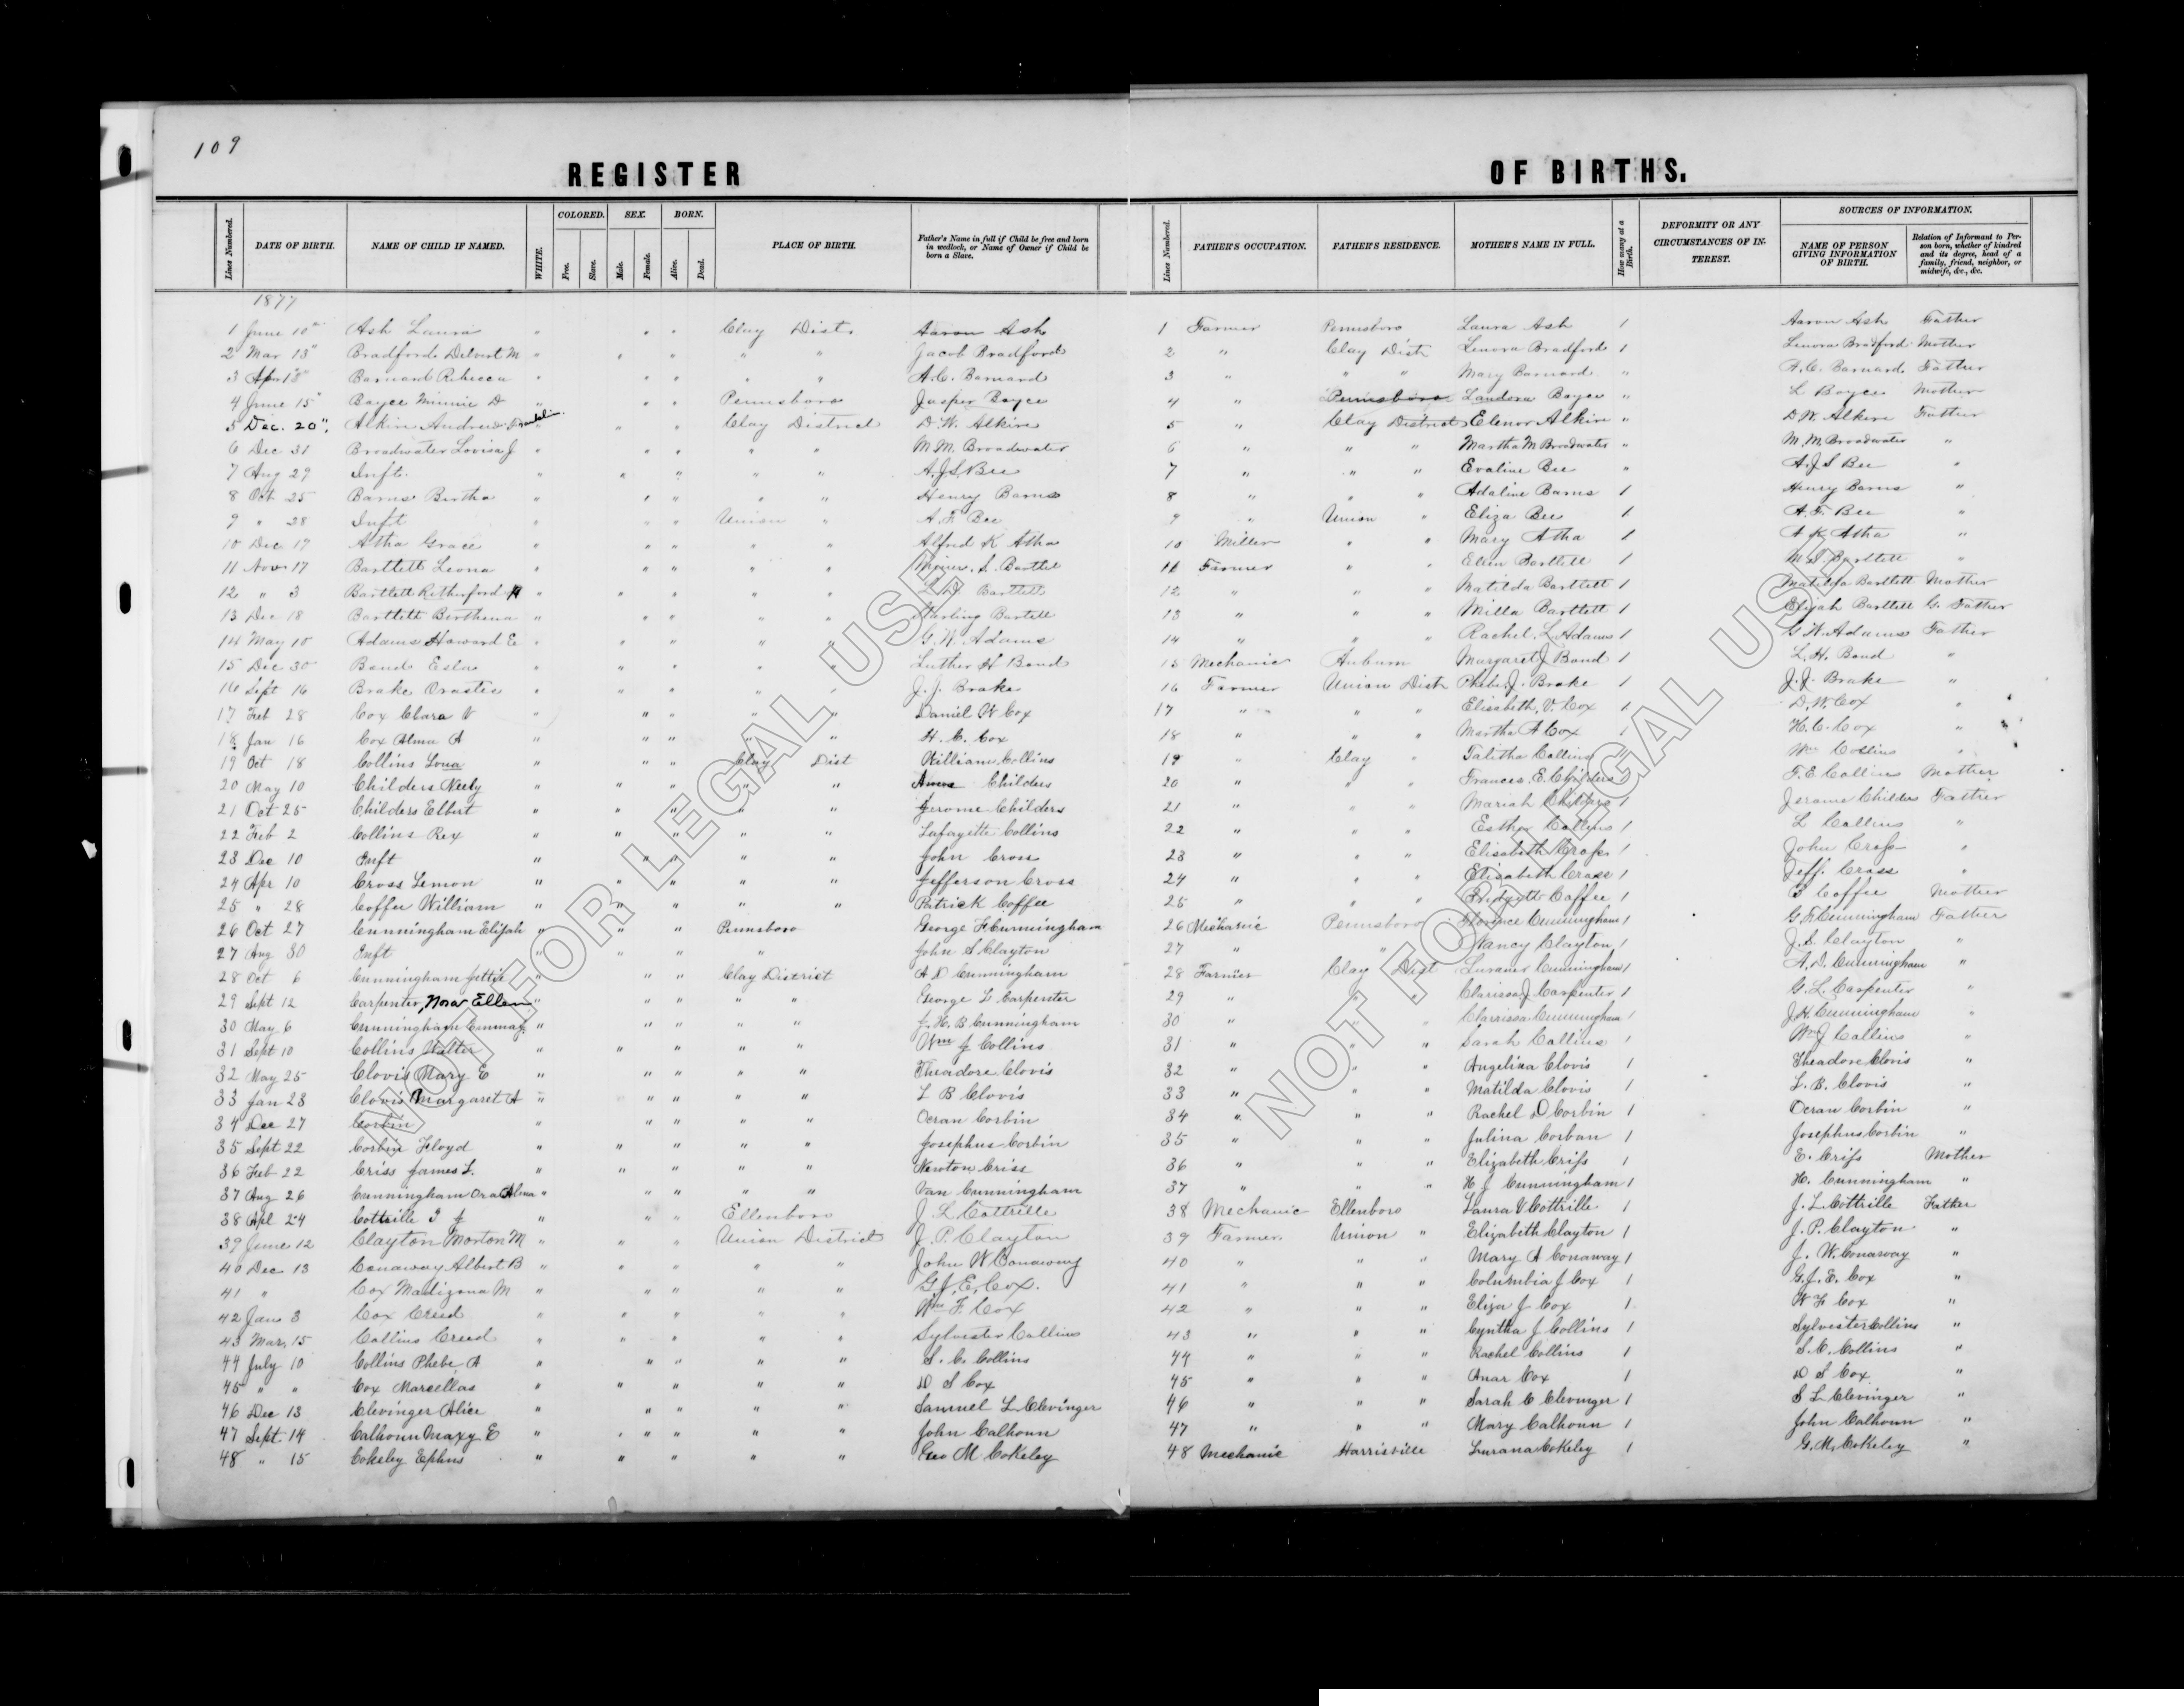 109
REGISTER OF BIRTHS.
Lines Numbered. DATE OF BIRTH. NAME OF CHILD IF NAMED. WHITE. COLORED. Free. Slave. SEX. Male. Female. BORN. Alive. Dead. PLACE OF BIRTH. Father's Name in full if Child be free and born in wedlock, or Name of Owner if Child be born a Slave. Lines Numbered. FATHER'S OCCUPATION. FATHER'S RESIDENCE. MOTHER'S NAME IN FULL. How many at a Birth. DEFORMITY OR ANY CIRCUMSTANCES OF INTEREST. SOURCES OF INFORMATION. NAME OF PERSON GIVING INFORMATION OF BIRTH. Relation of Informant to Person born, whether of kindred and its degree, head of a family, friend, neighbor, or midwife, &c., &c.
1877
1 June 10th Ash Laura " " " Clay Dist. Aaron Ash 1 Farmer Pennsboro Laura Ash 1 Aaron Ash Father
2 Mar 13" Bradford Delvert M " " " " " Jacob Bradford 2 " Clay Dist Lenora Bradford 1 Lenora Bradford Mother
3 Apr 18" Barnard Rebecca " " " " " A.C. Barnard 3 " " " Mary Barnard " A.C. Barnard Father
4 June 15" Boyce Minnie D " " " Pennsboro Jasper Boyce 4 " Pennsboro Landora Boyce " L Boyce Mother
5 Dec. 20", Alkire Andrew Franklin " " " Clay District D.W. Alkire 5 " Clay District Elenor Alkire " D.W. Alkire Father
6 Dec 31 Broadwater Lovisa J " " " " " M.M. Broadwater 6 " " " Martha M Broadwater " M.M. Broadwater "
7 Aug 29 Inft. " " " " " A.J.S. Bee 7 " " " Evaline Bee " A.J.S Bee "
8 Oct 25 Barns Birtha " " " " " Henry Barns 8 " " " Adaline Barns 1 Henry Barns "
9 " 28 Inft " " " Union " A.F. Bee 9 " Union " Eliza Bee 1 A.F. Bee "
10 Dec 17 Atha Grace " " " " " Alfred K Atha 10 Miller " " Mary Atha 1 A K Atha "
11 Nov 17 Bartlett Leona " " " " " 11 Farmer " " Ellen Bartlett 1 M.S. Bartlett "
12 " 3 Bartlett Rutherford H " " " " " L.D. Bartlett 12 " " " Matilda Bartlett 1 Matilda Bartlett Mother
13 Dec 18 Bartlett Birthena " " " " " Starling Bartlett 13 " " " Milla Bartlett 1 Elijah Bartlett G. Father
14 May 10 Adams Howard E " " " " " G.W. Adams 14 " " " Rachel L Adams 1 G W. Adams Father
15 Dec 30 Bond Esla " " " " " Luther H Bond 15 Mechanic Auburn Margaret J Bond 1 L.H. Bond "
16 Sept 16 Brake Orastes " " " " " J.J. Brake 16 Farmer Union Dist Phebe J. Brake 1 J.J. Brake "
17 Feb 28 Cox Clara V " " " " " Daniel W Cox 17 " " " Elisabeth V. Cox 1 D.W. Cox "
18 Jan 16 Cox Alma A " " " " " H. C. Cox 18 " " " Martha A Cox 1 H.C. Cox "
19 Oct 18 Collins Lona " " " Clay Dist William Collins 19 " Clay " Talitha Collins Wm Collins "
20 May 10 Childers Neely " " " " " Amos Childers 20 " " " Frances E. Childers F.E. Collins Mother
21 Oct 25 Childers Elbert " " " " " Jerome Childers 21 " " " Mariah Childers 1 Jerome Childers Father
22 Feb 2 Collins Rex " " " " " Lafayette Collins 22 " " " Esther Collins 1 L Collins "
23 Dec 10 Inft " " " " " John Cross 23 " " " Elisabeth Cross 1 John Cross "
24 Apr 10 Cross Lemon " " " " " Jefferson Cross 24 " " " Elizabeth Cross 1 Jeff. Cross "
25 " 28 Coffee William " " " " " Patrick Coffee 25 " " " Bridgett Coffee 1 B Coffee Mother
26 Oct 27 Cunningham Elijah " " " Pennsboro George F Cunningham 26 Mechanic Pennsboro Florence Cunningham 1 G F Cunningham Father
27 Aug 30 Inft " " " " John S Clayton 27 " " Nancy Clayton 1 J.S Clayton "
28 Oct 6 Cunningham Jettie " " " Clay District A D Cunningham 28 Farmer Clay Dist Lurana Cunningham 1 A.D. Cunningham "
29 Sept 12 Carpenter, Nora Ellen " " " " " George L Carpenter 29 " " " Clarissa J Carpenter 1 G.L. Carpenter "
30 May 6 Cunningham Emma J. " " " " " J. H. B Cunningham 30 " " " Clarrissa Cunningham 1 J.H. Cunningham "
31 Sept 10 Collins Walter " " " " " Wm J Collins 31 " " " Sarah Collins 1 Wm J Collins "
32 May 25 Clovis Mary E " " " " " Theadore Clovis 32 " " " Angelina Clovis 1 Theadore Clovis "
33 Jan 23 Clovis Margaret A " " " " " L B Clovis 33 " " " Matilda Clovis 1 L. B. Clovis "
34 Dec 27 Corbin " " " " " Ocran Corbin 34 " " " Rachel D Corbin 1 Ocran Corbin "
35 Sept 22 Corbin Floyd " " " " " Josephus Corbin 35 " " " Julina Corban 1 Josephus Corbin "
36 Feb 22 Criss James L. " " " " " Newton Criss 36 " " " Elizabeth Criss 1 E. Criss Mother
37 Aug 26 Cunningham Ora Alma " " " " " Van Cunningham 37 " " " H J Cunningham 1 H. Cunningham "
38 Apl 24 Cottrille I J " " " Ellenboro J. L Cottrille 38 Mechanic Ellenboro Laura V Cottrille 1 J. L. Cottrille Father
39 June 12 Clayton Morton M " " " Union District J. P. Clayton 39 Farmer. Union " Elizabeth Clayton 1 J. P. Clayton "
40 Dec 13 Conaway Albert B " " " " " John W Conaway 40 " " " Mary A Conaway 1 J. W. Conaway "
41 " Cox Madizona M " " " " " G.J.E. Cox. 41 " " " Columbia J Cox 1 G.J.E. Cox "
42 Jan 3 Cox Creed " " " " " Wm F. Cox 42 " " " Eliza J Cox 1 W F Cox "
43 Mar, 15 Collins Creed " " " " " Sylvester Collins 43 " " " Cyntha J Collins 1 Sylvester Collins "
44 July 10 Collins Phebe A " " " " " S. C. Collins 44 " " " Rachel Collins 1 S.C. Collins "
45 " " Cox Marcellas " " " " " D S Cox 45 " " " Anar Cox 1 D S Cox "
46 Dec 13 Clevinger Alice " " " " " Samuel L Clevinger 46 " " " Sarah C Clevinger 1 S L Clevinger "
47 Sept 14 Calhoun Maxy E " " " " " John Calhoun 47 " " " Mary Calhoun 1 John Calhoun "
48 " 15 Cokeley Ephus " " " " " Geo M Cokeley 48 Mechanic Harrisville Lurana Cokeley 1 G.M. Cokeley "
NOT FOR LEGAL USE
NOT FOR LEGAL USE